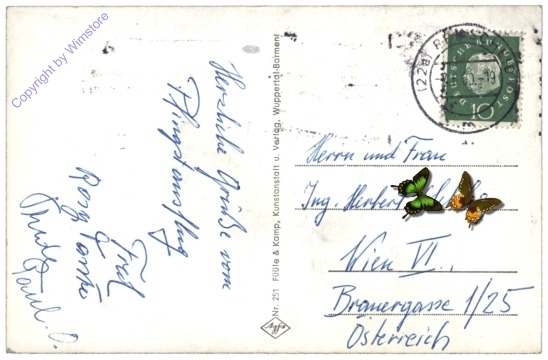 Copyright by Wimstore
Herzliche Grüße vom
Pfingstausflug
Fred
Rosy Tante
Nr. 251 Füüle & Kamp, Kunstanstalt u. Verlag, Wuppertal-Barmen
Agfa
(22a)
DEUTSCHE BUNDESPOST
10
Herrn und Frau
Ing. Herbert
Wien VI.,
Brauergasse 1/25
Österreich